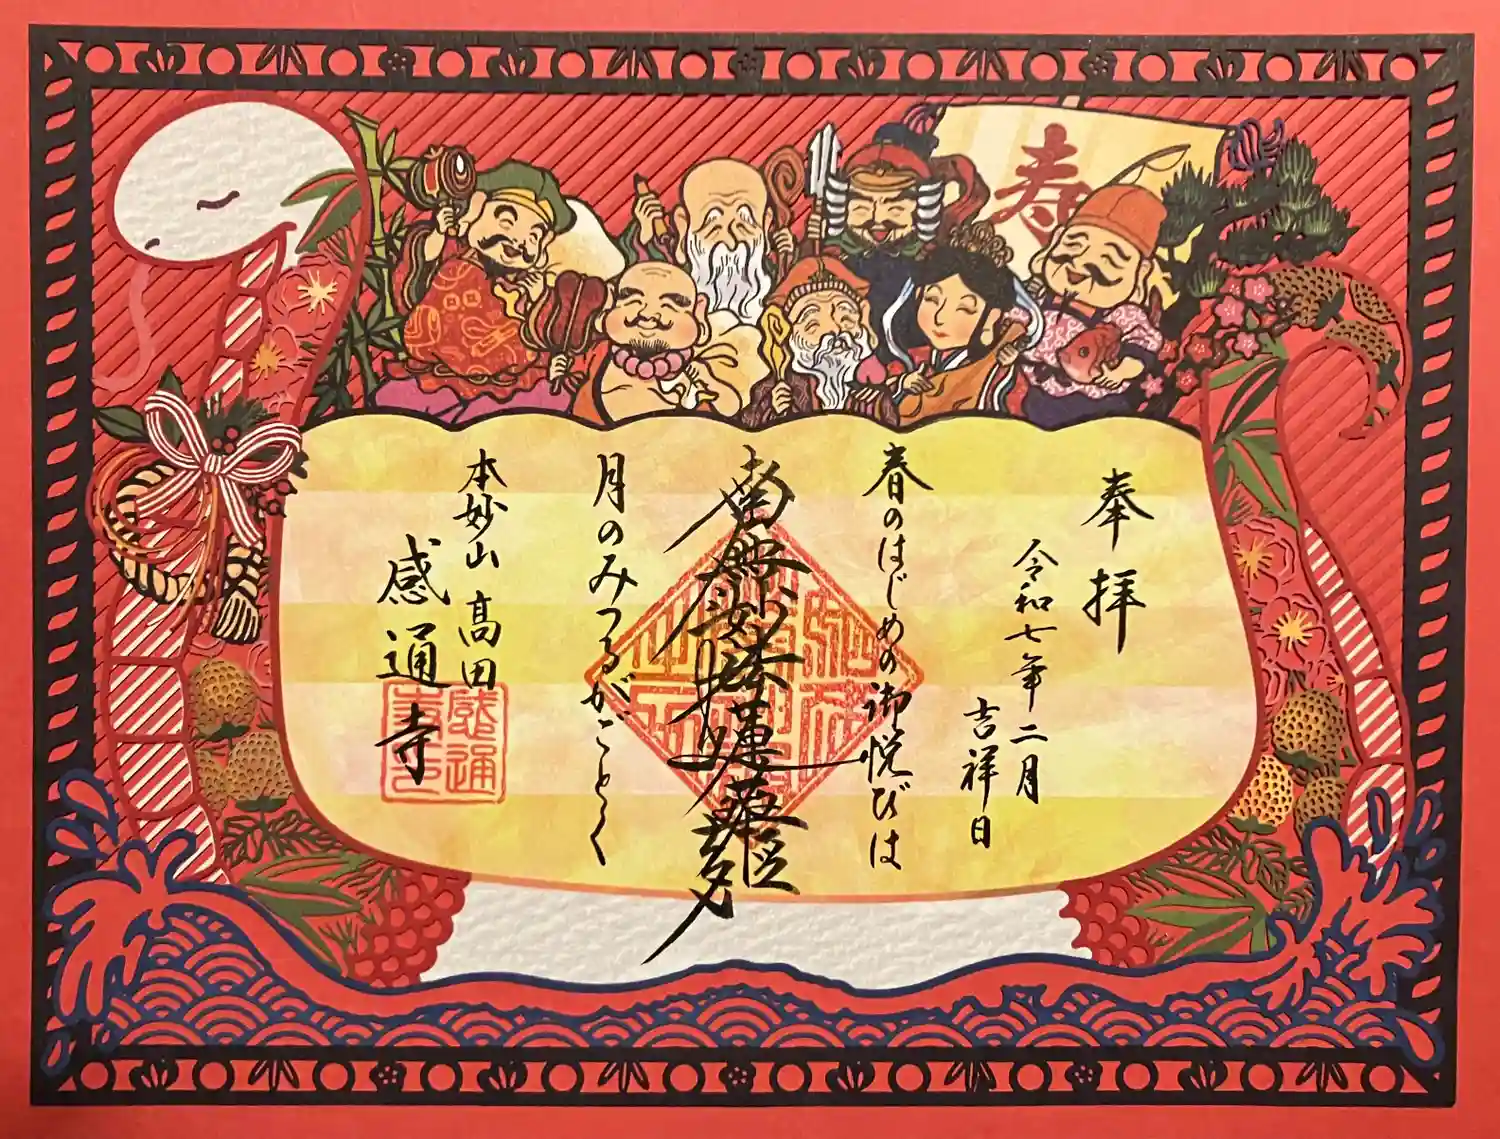 寿
奉拝
令和七年二月
吉祥日
春のはじめの御悦びは
南無妙法蓮華経
月のみつるがごとく
本妙山 高田
感通寺
感通
寺印